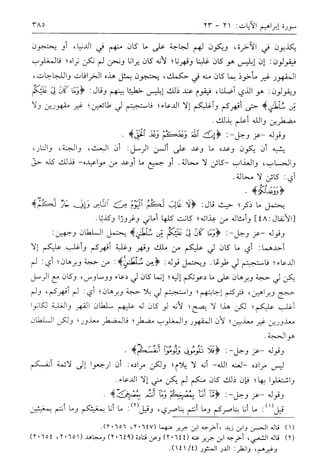 سورة إبراهيم الآيات: ٢١ - ٢٣ ٣٨٥
يكذبون في الآخرة، ويكون لهم لجاجة على ما كان منهم في الدنيا، أو يحتجون
فيقولون: إن إبليس هو كان غلبنا وقهرنا؛ لأنه كان يرانا ونحن لم نكن نراه؛ فالمغلوب
المقهور غير مأخوذ بما كان منه في حكمك، يحتجون بمثل هذه الخرافات واللجاجات،
ويقولون: هو الذي أضلنا، فيقوم عند ذلك إبليس خطيبًا بينهم وقال: ﴿وَمَا كَانَ لِيَ عَلَيْكُم
مِّن سُلْطَٰنٍ﴾ حتى أقهركم وأغلبكم إلا الدعاء؛ فاستجبتم لي طائعين؛ غير مقهورين ولا
مضطرين والله أعلم بذلك.
وقوله -عز وجل-: ﴿إِنَّ اللَّهَ وَعَدَكُمْ وَعْدَ الْحَقِّ﴾.
يشبه أن يكون وعده ما وعد على ألسن الرسل: أن البعث، والجنة، والنار،
والحساب، والعذاب -كائن لا محالة. أو جميع ما أوعد من مواعيده- فذلك كله حق
أي: كائن لا محالة.
﴿وَوَعَدتُّكُمْ﴾.
يحتمل ما ذكر؛ حيث قال: ﴿لَا غَالِبَ لَكُمُ الْيَوْمَ مِنَ النَّاسِ وَإِنِّي جَارٌ لَّكُمْ﴾
[الأنفال: ٤٨] وأمثاله من عداته؛ كانت كلها أماني وغرورًا وكذبًا.
وقوله -عز وجل-: ﴿وَمَا كَانَ لِيَ عَلَيْكُم مِّن سُلْطَٰنٍ﴾ يحتمل السلطان وجهين:
أحدهما: أي ما كان لي عليكم من ملك وقهر وغلبة أقهركم وأغلب عليكم إلا
الدعاء؛ فاستجبتم لي طوعًا. ويحتمل قوله: ﴿مِّن سُلْطَٰنٍ﴾: من حجة وبرهان؛ أي: لم
يكن لي حجة وبرهان على ما دعوتكم إليه؛ إنما كان لي دعاء ووساوس، وكان مع الرسل
حجج وبراهين، فتركتم إجابتهم؛ واستجبتم لي بلا حجة وبرهان؛ أي: لم أقهركم، ولم
أغلب عليكم؛ لكن هذا لا يصح؛ لأنه لو كان له عليهم سلطان القهر والغلبة لكانوا
معذورين غير معذبين؛ لأن المقهور والمغلوب مضطر؛ فالمضطر معذور؛ ولكن السلطان
هو الحجة.
وقوله -عز وجل-: ﴿فَلَا تَلُومُونِي وَلُومُوا أَنفُسَكُم﴾.
ليس مراده -لعنه الله- أنه لا يلام؛ ولكن مراده: أن ارجعوا إلى لائمة أنفسكم
واشتغلوا بها؛ فإن ذلك كان منكم لم يكن مني إلا الدعاء.
وقوله -عز وجل-: ﴿مَّا أَنَا بِمُصْرِخِكُمْ وَمَا أَنتُم بِمُصْرِخِيَّ﴾.
قيل(١): ما أنا بناصركم وما أنتم بناصري، وقيل(٢): ما أنا بمغيثكم وما أنتم بمغيثين
(١) قاله الحسن وابن زيد، أخرجه ابن جرير عنهما (٢٠٦٤٧)، (٢٠٦٥٦).
(٢) قاله الشعبي، أخرجه ابن جرير عنه (٢٠٦٤٤) وعن قتادة (٢٠٦٤٩) ومجاهد (٢٠٦٥١)، (٢٠٦٥٤)
وغيرهم، وانظر: الدر المنثور (٤/ ١٤١).